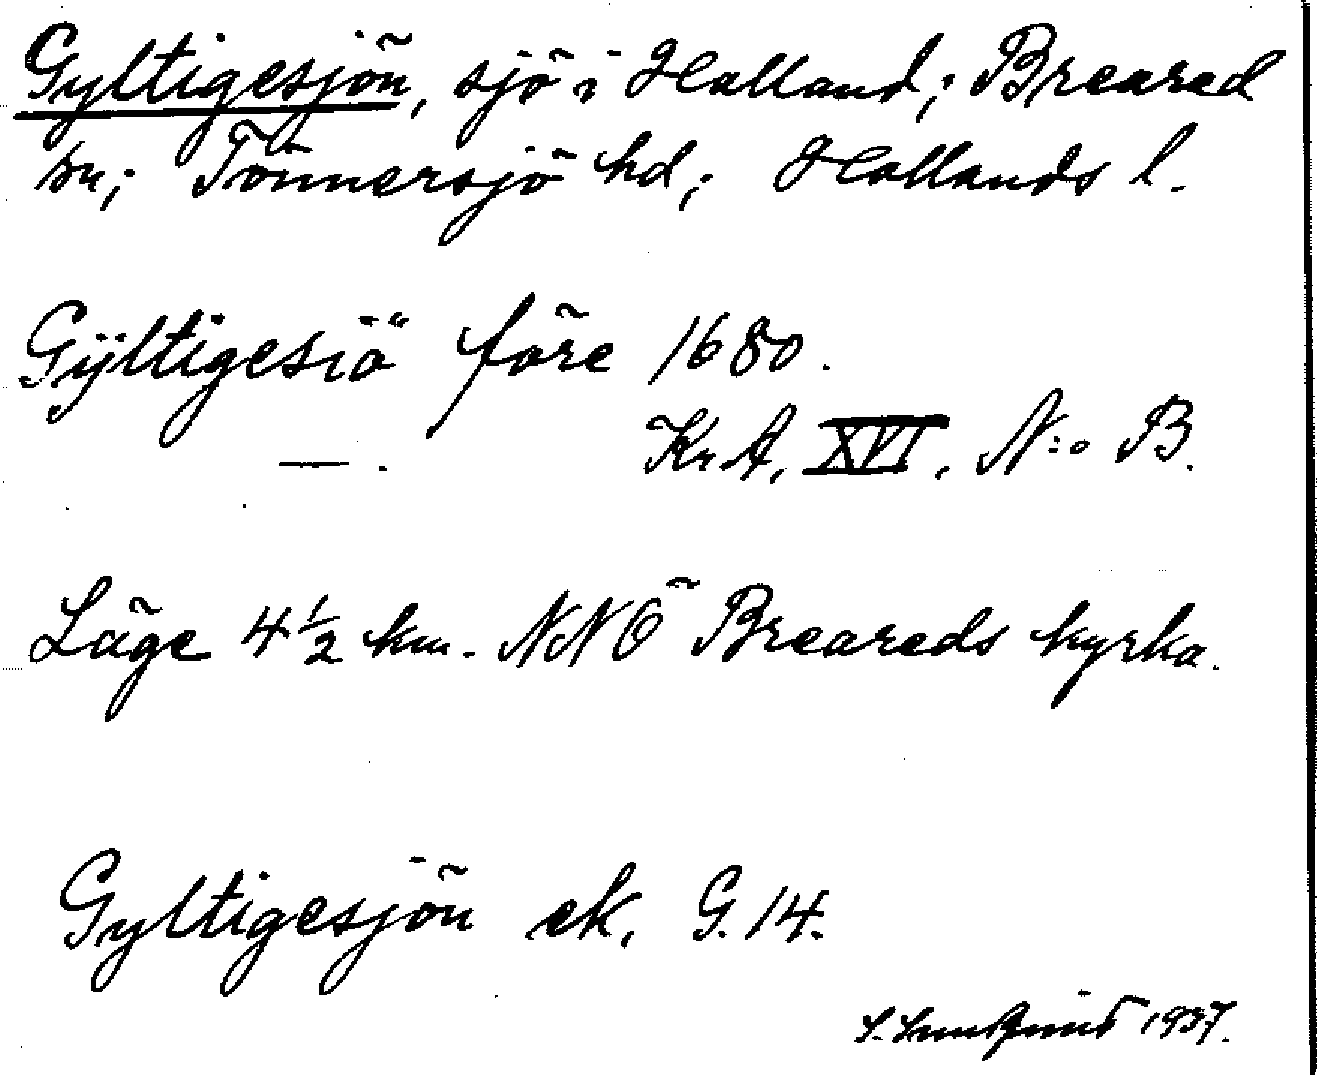 Gyltigesjön, sjö i Halland; Breared
sn; Tönnersjö hd; Hallands l.
Gÿltigesiö före 1680.
— . Kr A, XVI, N:o B.
Läge 4 1/2 km. NNÖ Breareds kyrka.
Gyltigesjön ek. G. 14.
1937.